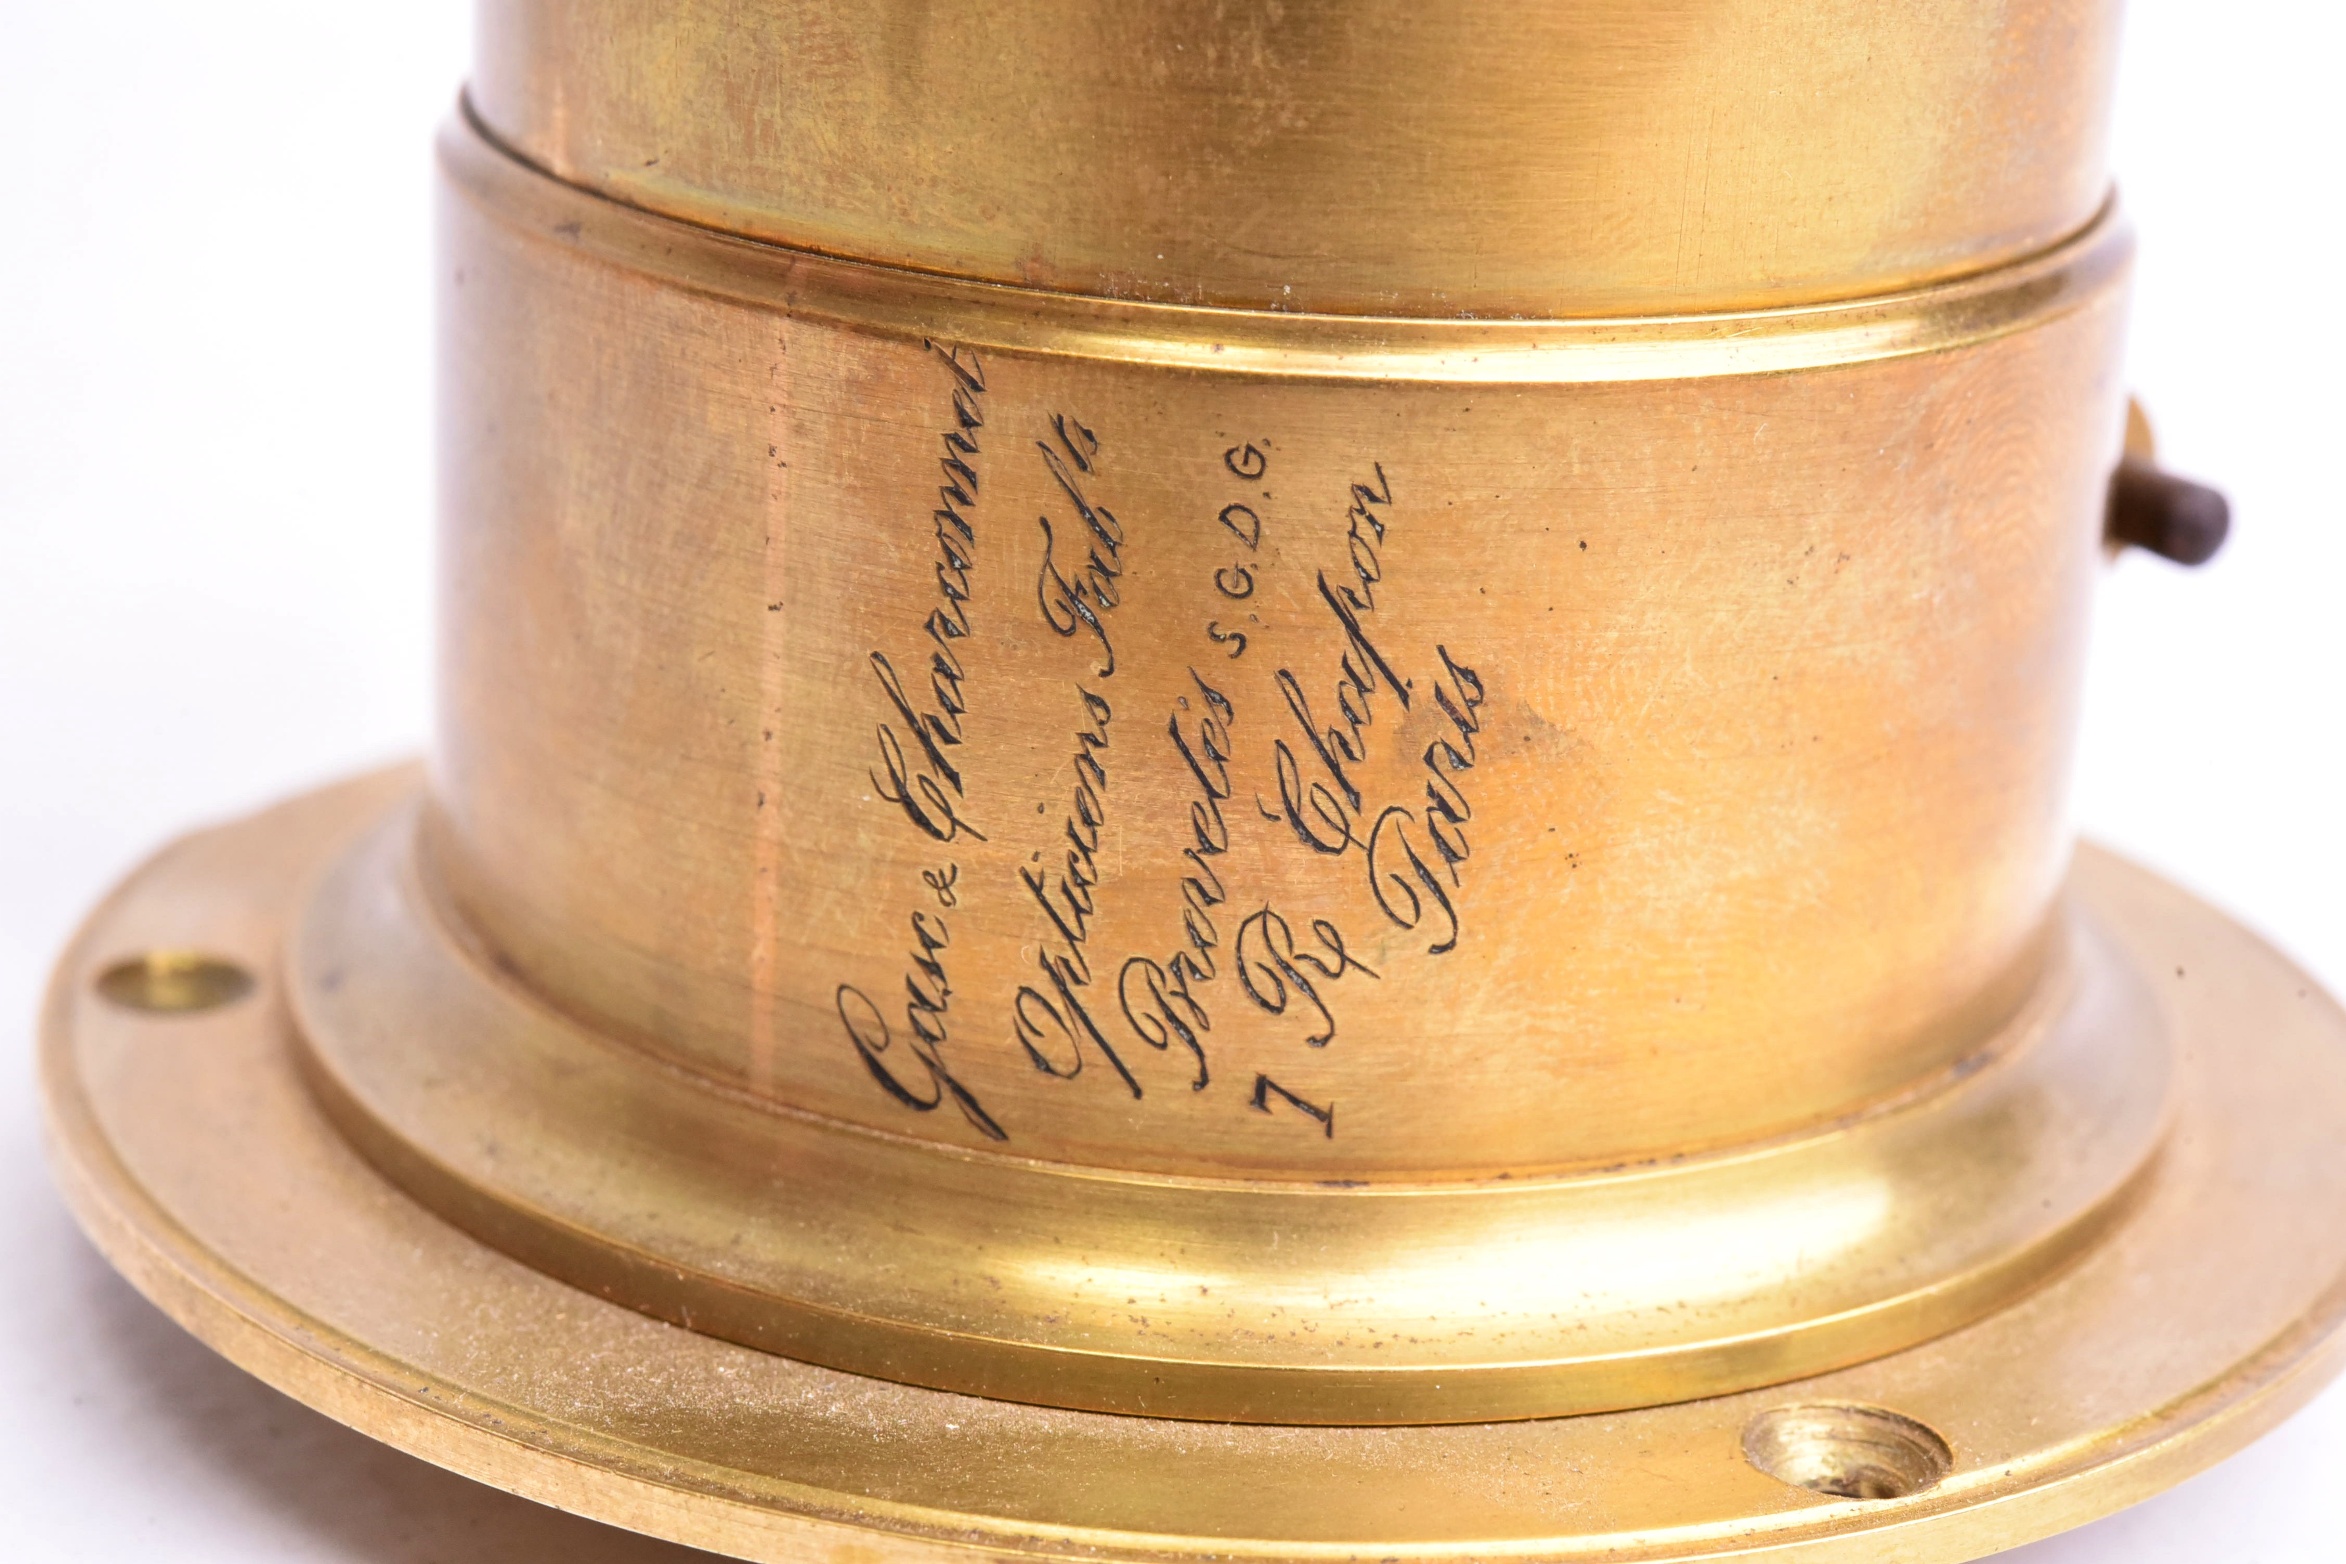 Gasc & Charconnet
Opticiens Fabts
Brevetés S.G.D.G.
7 R. Chapon
Paris